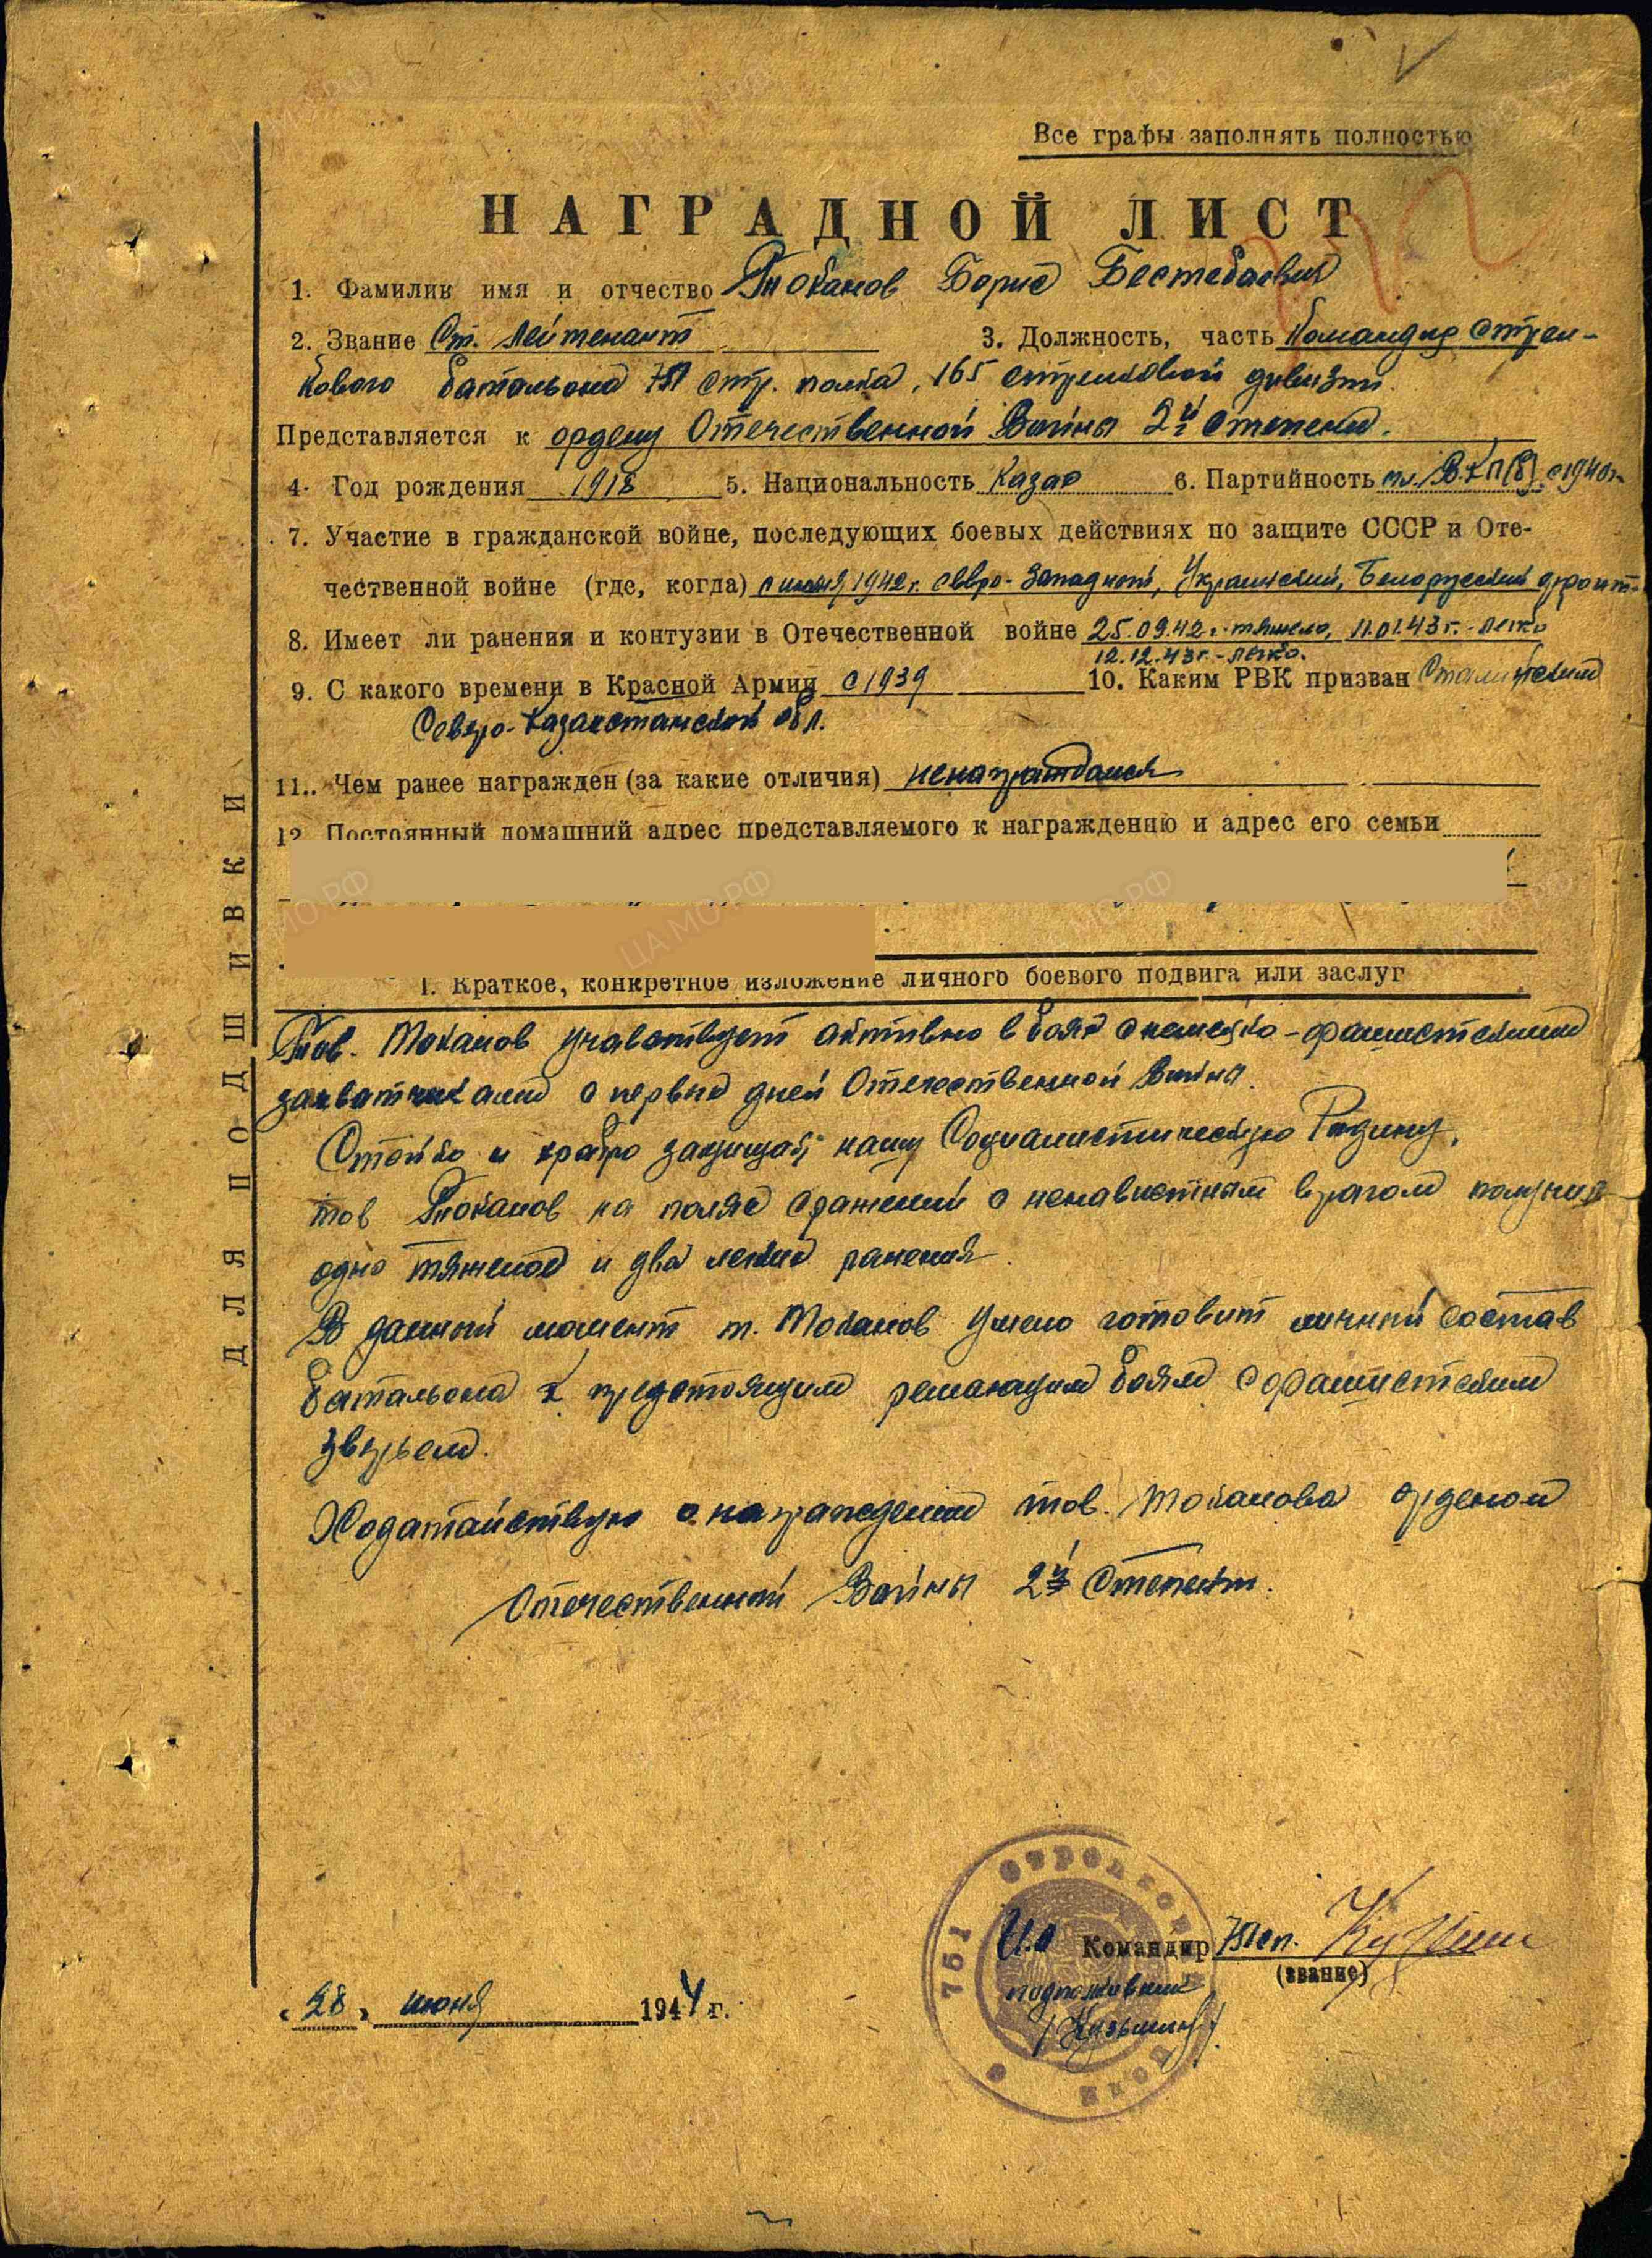 Все графы заполнять полностью
НАГРАДНОЙ ЛИСТ
1. Фамилия имя и отчество Токанов Борис Бестебаевич
2. Звание Ст. Лейтенант 3. Должность, часть Командир стрел-
кового батальона 751 стр. полка, 165 стрелковой дивизии.
Представляется к ордену Отечественной Войны 2й степени.
4. Год рождения 1918 5. Национальность Казах 6. Партийность чл. ВКП(б) с 1940г.
7. Участие в гражданской войне, последующих боевых действиях по защите СССР и Оте-
чественной войне (где, когда) с 1942г. Северо-Западный, Украинский, Белорусский фронт.
8. Имеет ли ранения и контузии в Отечественной войне 25.09.42г. тяжело, 11.01.43г. - легко
12.12.43г. - легко.
9. С какого времени в Красной Армии с 1939 10. Каким РВК призван Сталинским
Северо-Казахстанской обл.
11. Чем ранее награжден (за какие отличия) ненаграждался
12. Постоянный домашний адрес представляемого к награждению и адрес его семьи
1. Краткое, конкретное изложение личного боевого подвига или заслуг
Тов. Токанов учавствует активно в боях с немецко-фашистскими
захватчиками с первых дней Отечественной Войны.
Стойко и храбро защищая нашу Социалистическую Родину,
тов Токанов на полях сражений с ненавистным врагом получил
одно тяжелое и два легких ранения.
В данный момент т. Токанов умело готовит личный состав
батальона к предстоящим решающим боям с фашистским
зверьем.
Ходатайствую о награждении тов. Токанова орденом
Отечественной Войны 2й степени.
ДЛЯ ПОДШИВКИ
И.о Командир 751 сп.
(звание)
подполковник
/Кузьмин/.
"28" июня 1944 г.
751 стрелковый полк
ЦАМО.РФ